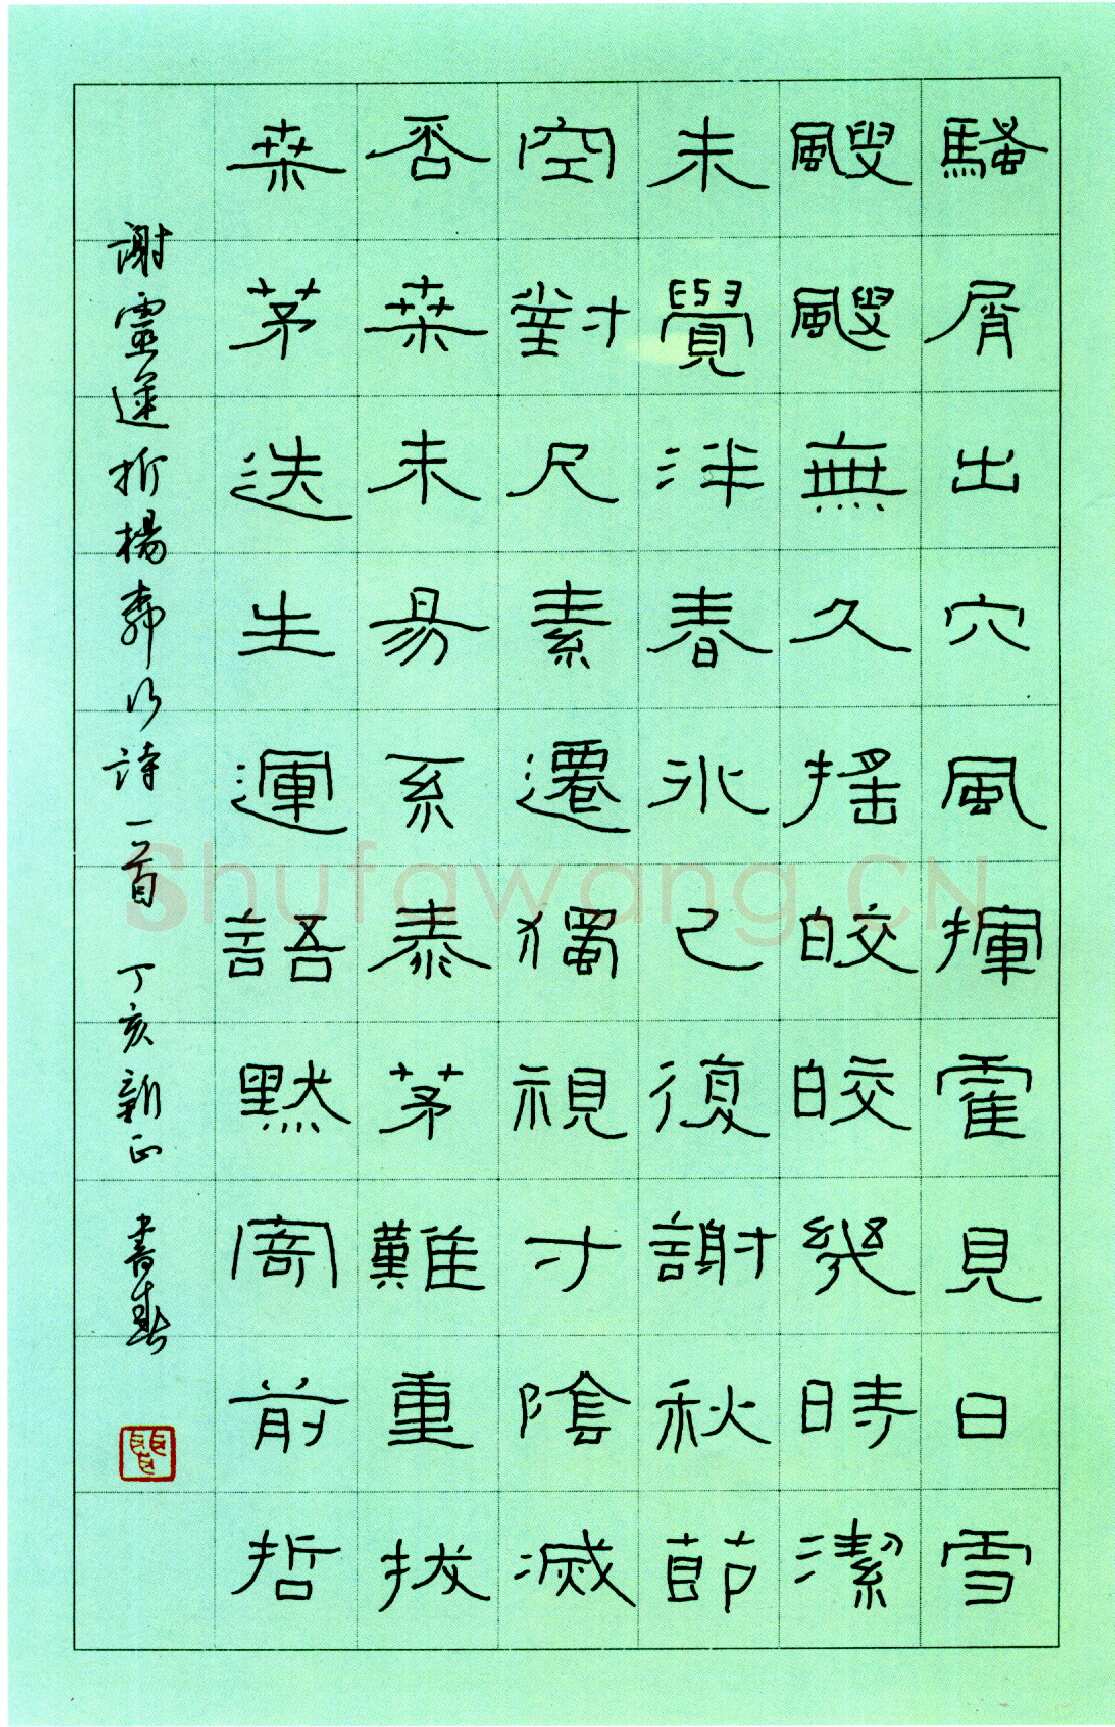 騷屑出穴風揮霍見日雪
颼颼無久搖皎皎幾時潔
未覺泮春冰已復謝秋節
空對尺素遷獨視寸陰滅
否桑未易系泰茅難重拔
桑茅迭生運語默寄前哲
謝靈運折楊柳行詩一首 丁亥新正
Shufawang.CN